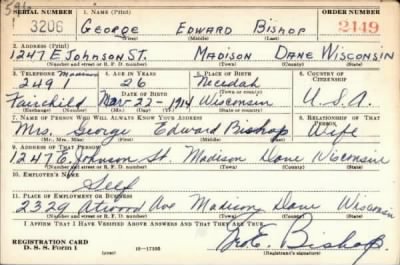 SERIAL NUMBER 1. NAME (Print) ORDER NUMBER
3206 GEORGE EDWARD BISHOP 2149
(First) (Middle) (Last)
2. ADDRESS (Print)
1247 E. JOHNSON ST. MADISON DANE WISCONSIN
(Number and street or R. F. D. number) (Town) (County) (State)
3. TELEPHONE Madison 4. AGE IN YEARS 5. PLACE OF BIRTH 6. COUNTRY OF CITIZENSHIP
249 26 Necedah
DATE OF BIRTH (Town or county)
Fairchild Nov-22-1914 Wisconsin U.S.A.
(Exchange) (Number) (Mo.) (Day) (Yr.) (State or country)
7. NAME OF PERSON WHO WILL ALWAYS KNOW YOUR ADDRESS 8. RELATIONSHIP OF THAT PERSON
Mrs. George Edward Bishop Wife
(Mr., Mrs., Miss) (First) (Middle) (Last)
9. ADDRESS OF THAT PERSON
1247 E. Johnson St. Madison Dane Wisconsin
(Number and street or R. F. D. number) (Town) (County) (State)
10. EMPLOYER'S NAME
Self
11. PLACE OF EMPLOYMENT OR BUSINESS
2329 Atwood Ave Madison Dane Wisconsin
(Number and street or R. F. D. number) (Town) (County) (State)
I AFFIRM THAT I HAVE VERIFIED ABOVE ANSWERS AND THAT THEY ARE TRUE.
REGISTRATION CARD
D. S. S. Form 1 (over) 16—17105 Geo E. Bishop
(Registrant's signature)